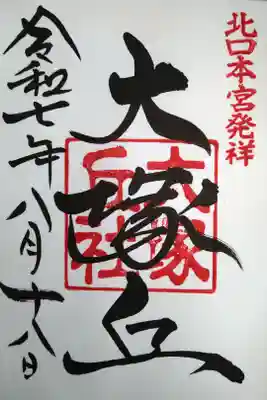 北口本宮発祥
大塚丘
大塚
丘社
令和七年八月十八日